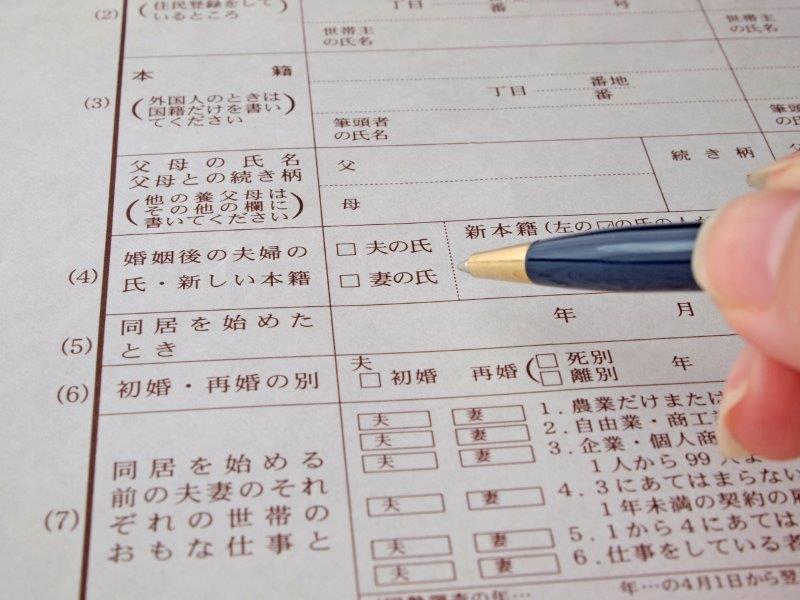 (2)
(住民登録をして
いるところ)
丁目 番 号
世帯主
の氏名
世帯主
の氏名
(3)
本籍
(外国人のときは
国籍だけを書い
てください)
丁目 番地
番
筆頭者
の氏名
筆頭
の氏
父母の氏名
父母との続き柄
(他の養父母は
その他の欄に
書いてください)
父
母
続き柄
父
(4)
婚姻後の夫婦の
氏・新しい本籍
□ 夫の氏
□ 妻の氏
新本籍(左の☑の氏の人
(5)
同居を始めた
とき
年 月
(6)
初婚・再婚の別
夫
□ 初婚 再婚(□ 死別
□ 離別
年
(7)
同居を始める
前の夫妻のそれ
ぞれの世帯の
おもな仕事と
夫 妻
夫 妻
夫 妻
夫 妻
夫 妻
夫 妻
1.農業だけまたは
2.自由業・商工業
3.企業・個人商
1人から99人
4.3にあてはまらない
1年未満の契約の
5.1から4にあては
6.仕事をしている者
年…の4月1日から翌